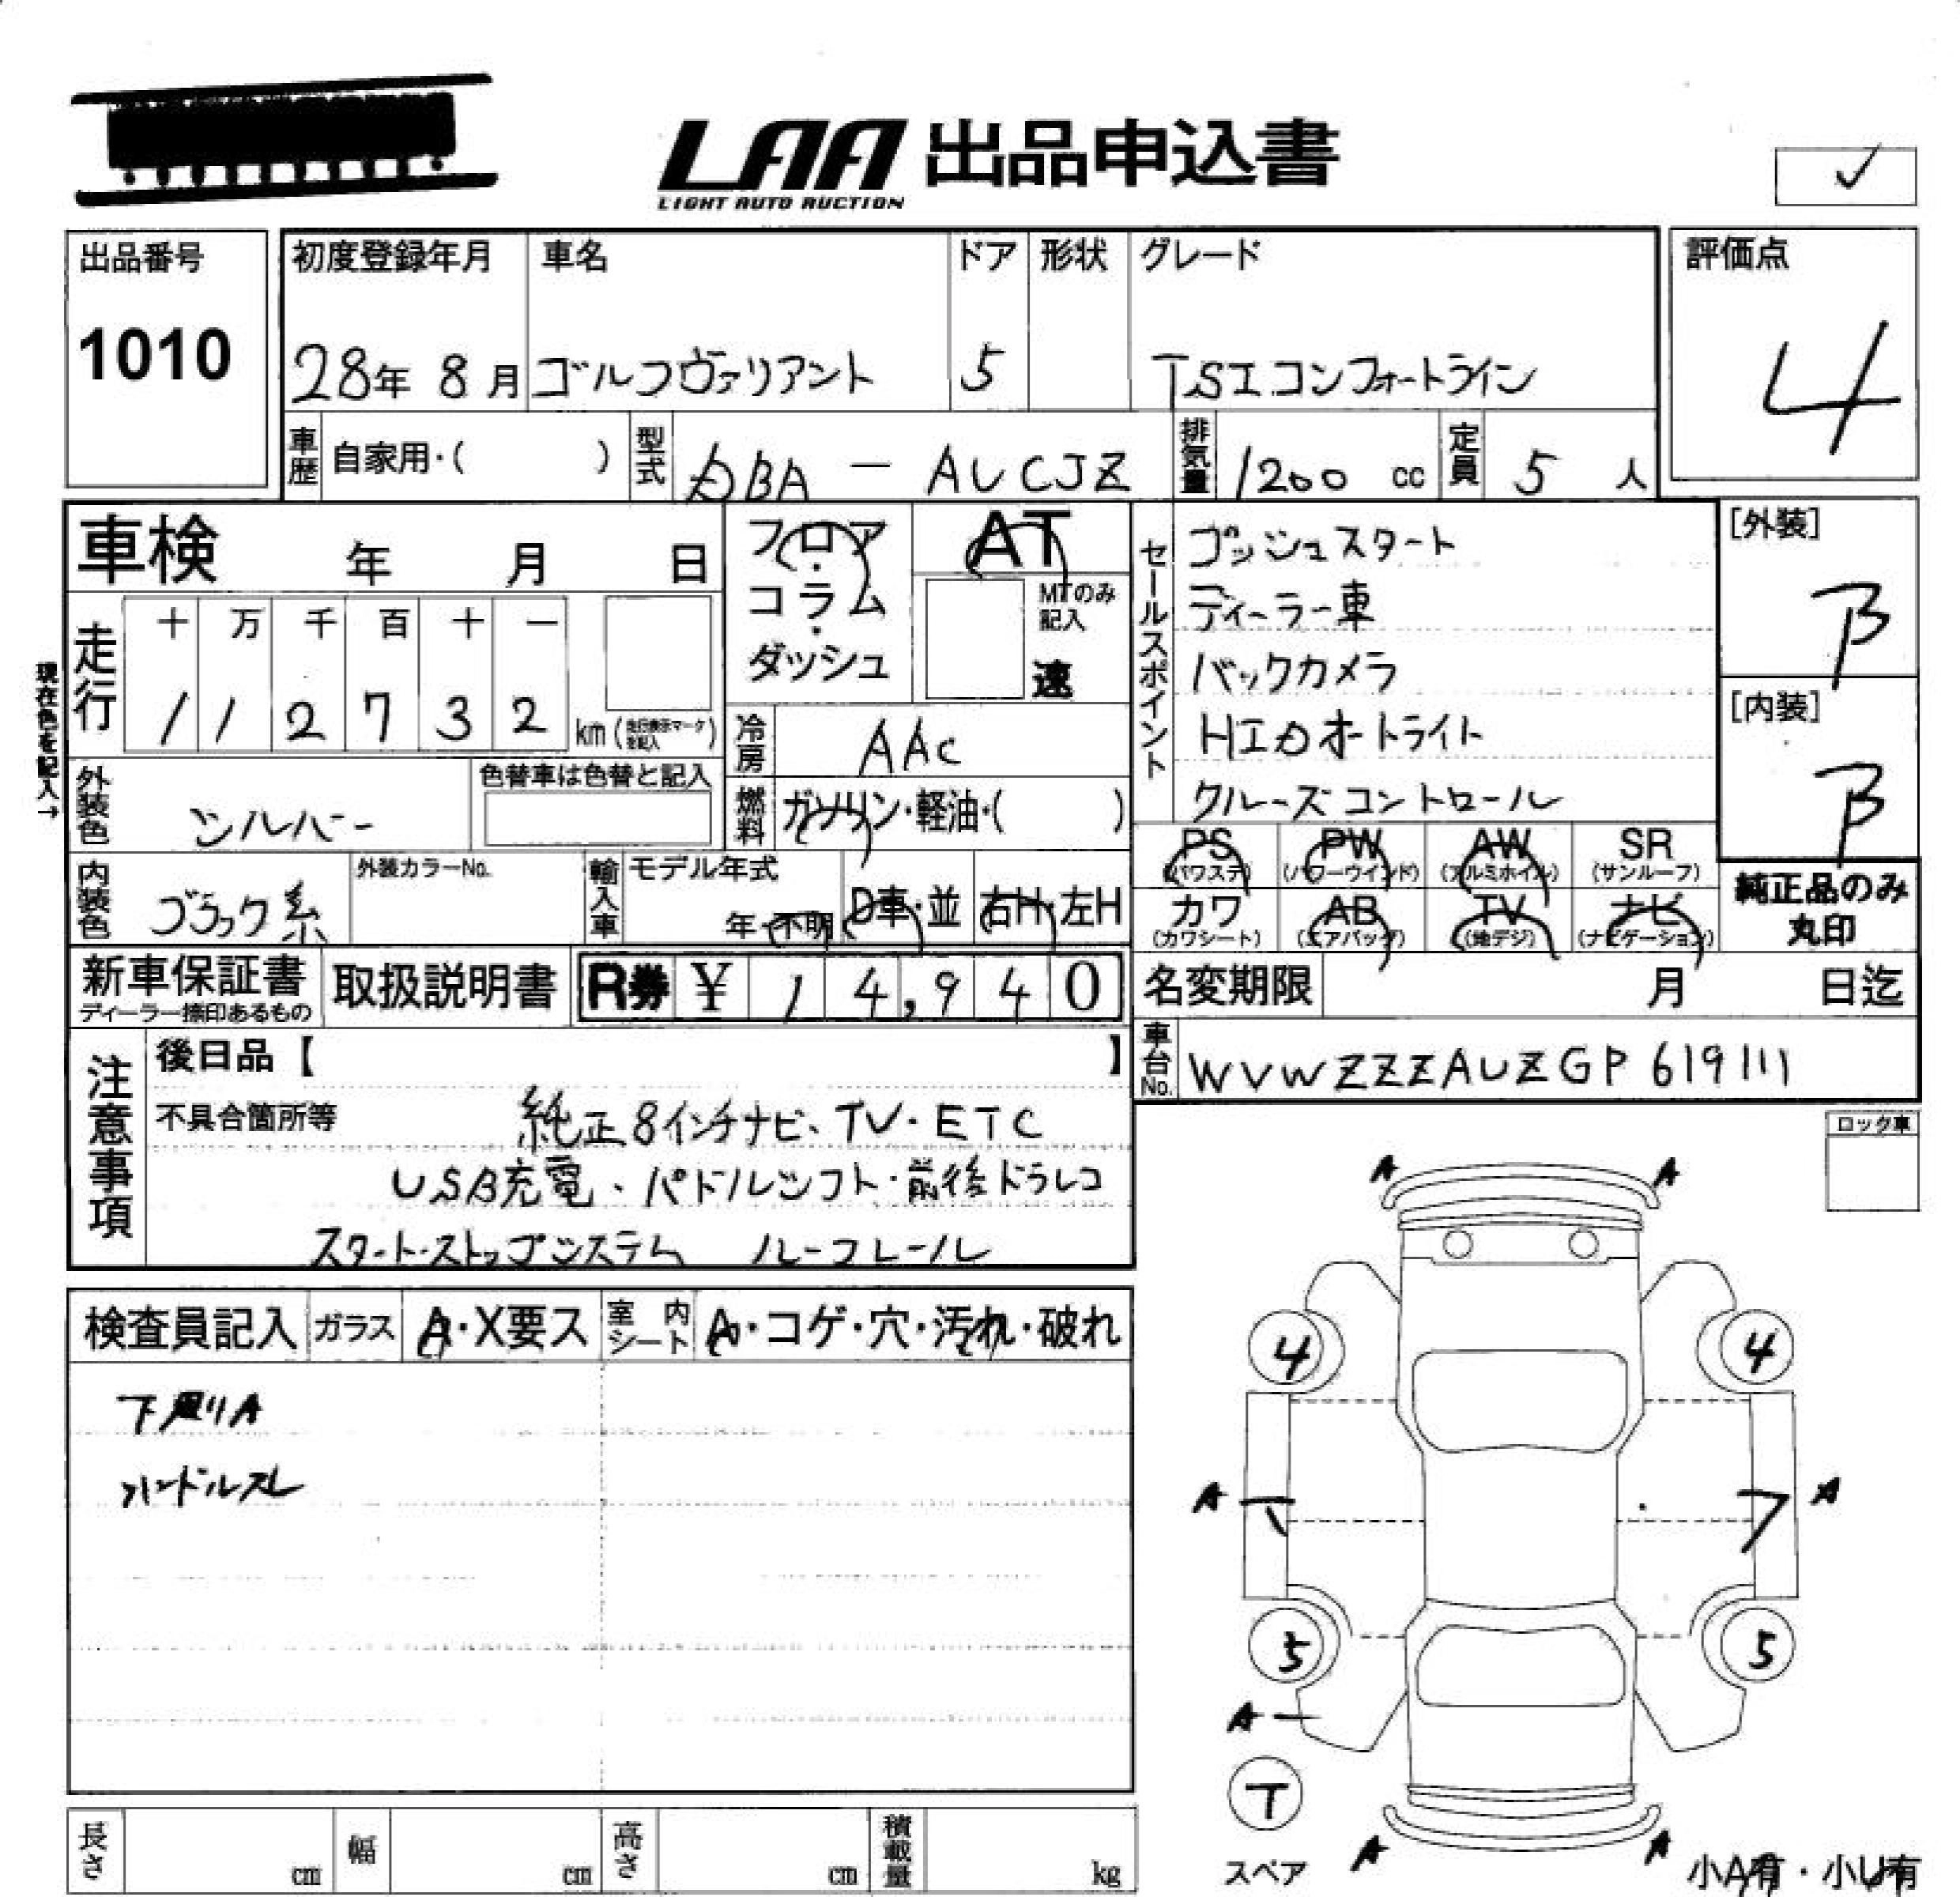 LAA 出品申込書
LIGHT AUTO AUCTION
✓
出品番号
1010
初度登録年月
28年 8月
車名
ゴルフヴァリアント
ドア
5
形状
グレード
TSI コンフォートライン
評価点
4
車歴 自家用・( )
型式 DBA - AUCJZ
排気量 1200 cc
定員 5 人
車検 年 月 日
フロア・コラム・ダッシュ
AT
MTのみ記入
速
セールスポイント
プッシュスタート
ディーラー車
バックカメラ
HID オートライト
クルーズコントロール
[外装]
B
[内装]
B
現在色を記入→
走行
十 万 千 百 十 一
1 1 2 7 3 2 km
冷房 AAC
外装色 シルバー
色替車は色替と記入
燃料 ガソリン・軽油・( )
PS (パワステ)
PW (パワーウインド)
AW (アルミホイル)
SR (サンルーフ)
内装色 ブラック系
外装カラーNo.
輸入車 モデル年式
年・不明
D車・並
右H・左H
カワ (カワシート)
AB (エアバッグ)
TV (地デジ)
ナビ (ナビゲーション)
純正品のみ
丸印
新車保証書
ディーラー捺印あるもの
取扱説明書
R券 ¥ 1 4,9 4 0
名変期限 月 日迄
車台No. WVWZZZAUZGP619111
注意事項
後日品【 】
不具合箇所等
純正8インチナビ、TV・ETC
USB充電、パドルシフト・前後ドラレコ
スタート・ストップシステム ルーフレール
ロック車
検査員記入
ガラス A・X要ス
室内シート A・コゲ・穴・汚れ・破れ
下廻りA
ハンドルスレ
A A
4 4
A A
5 5
A
T
スペア
A A
小A有・小U有
長さ cm
幅 cm
高さ cm
積載量 kg